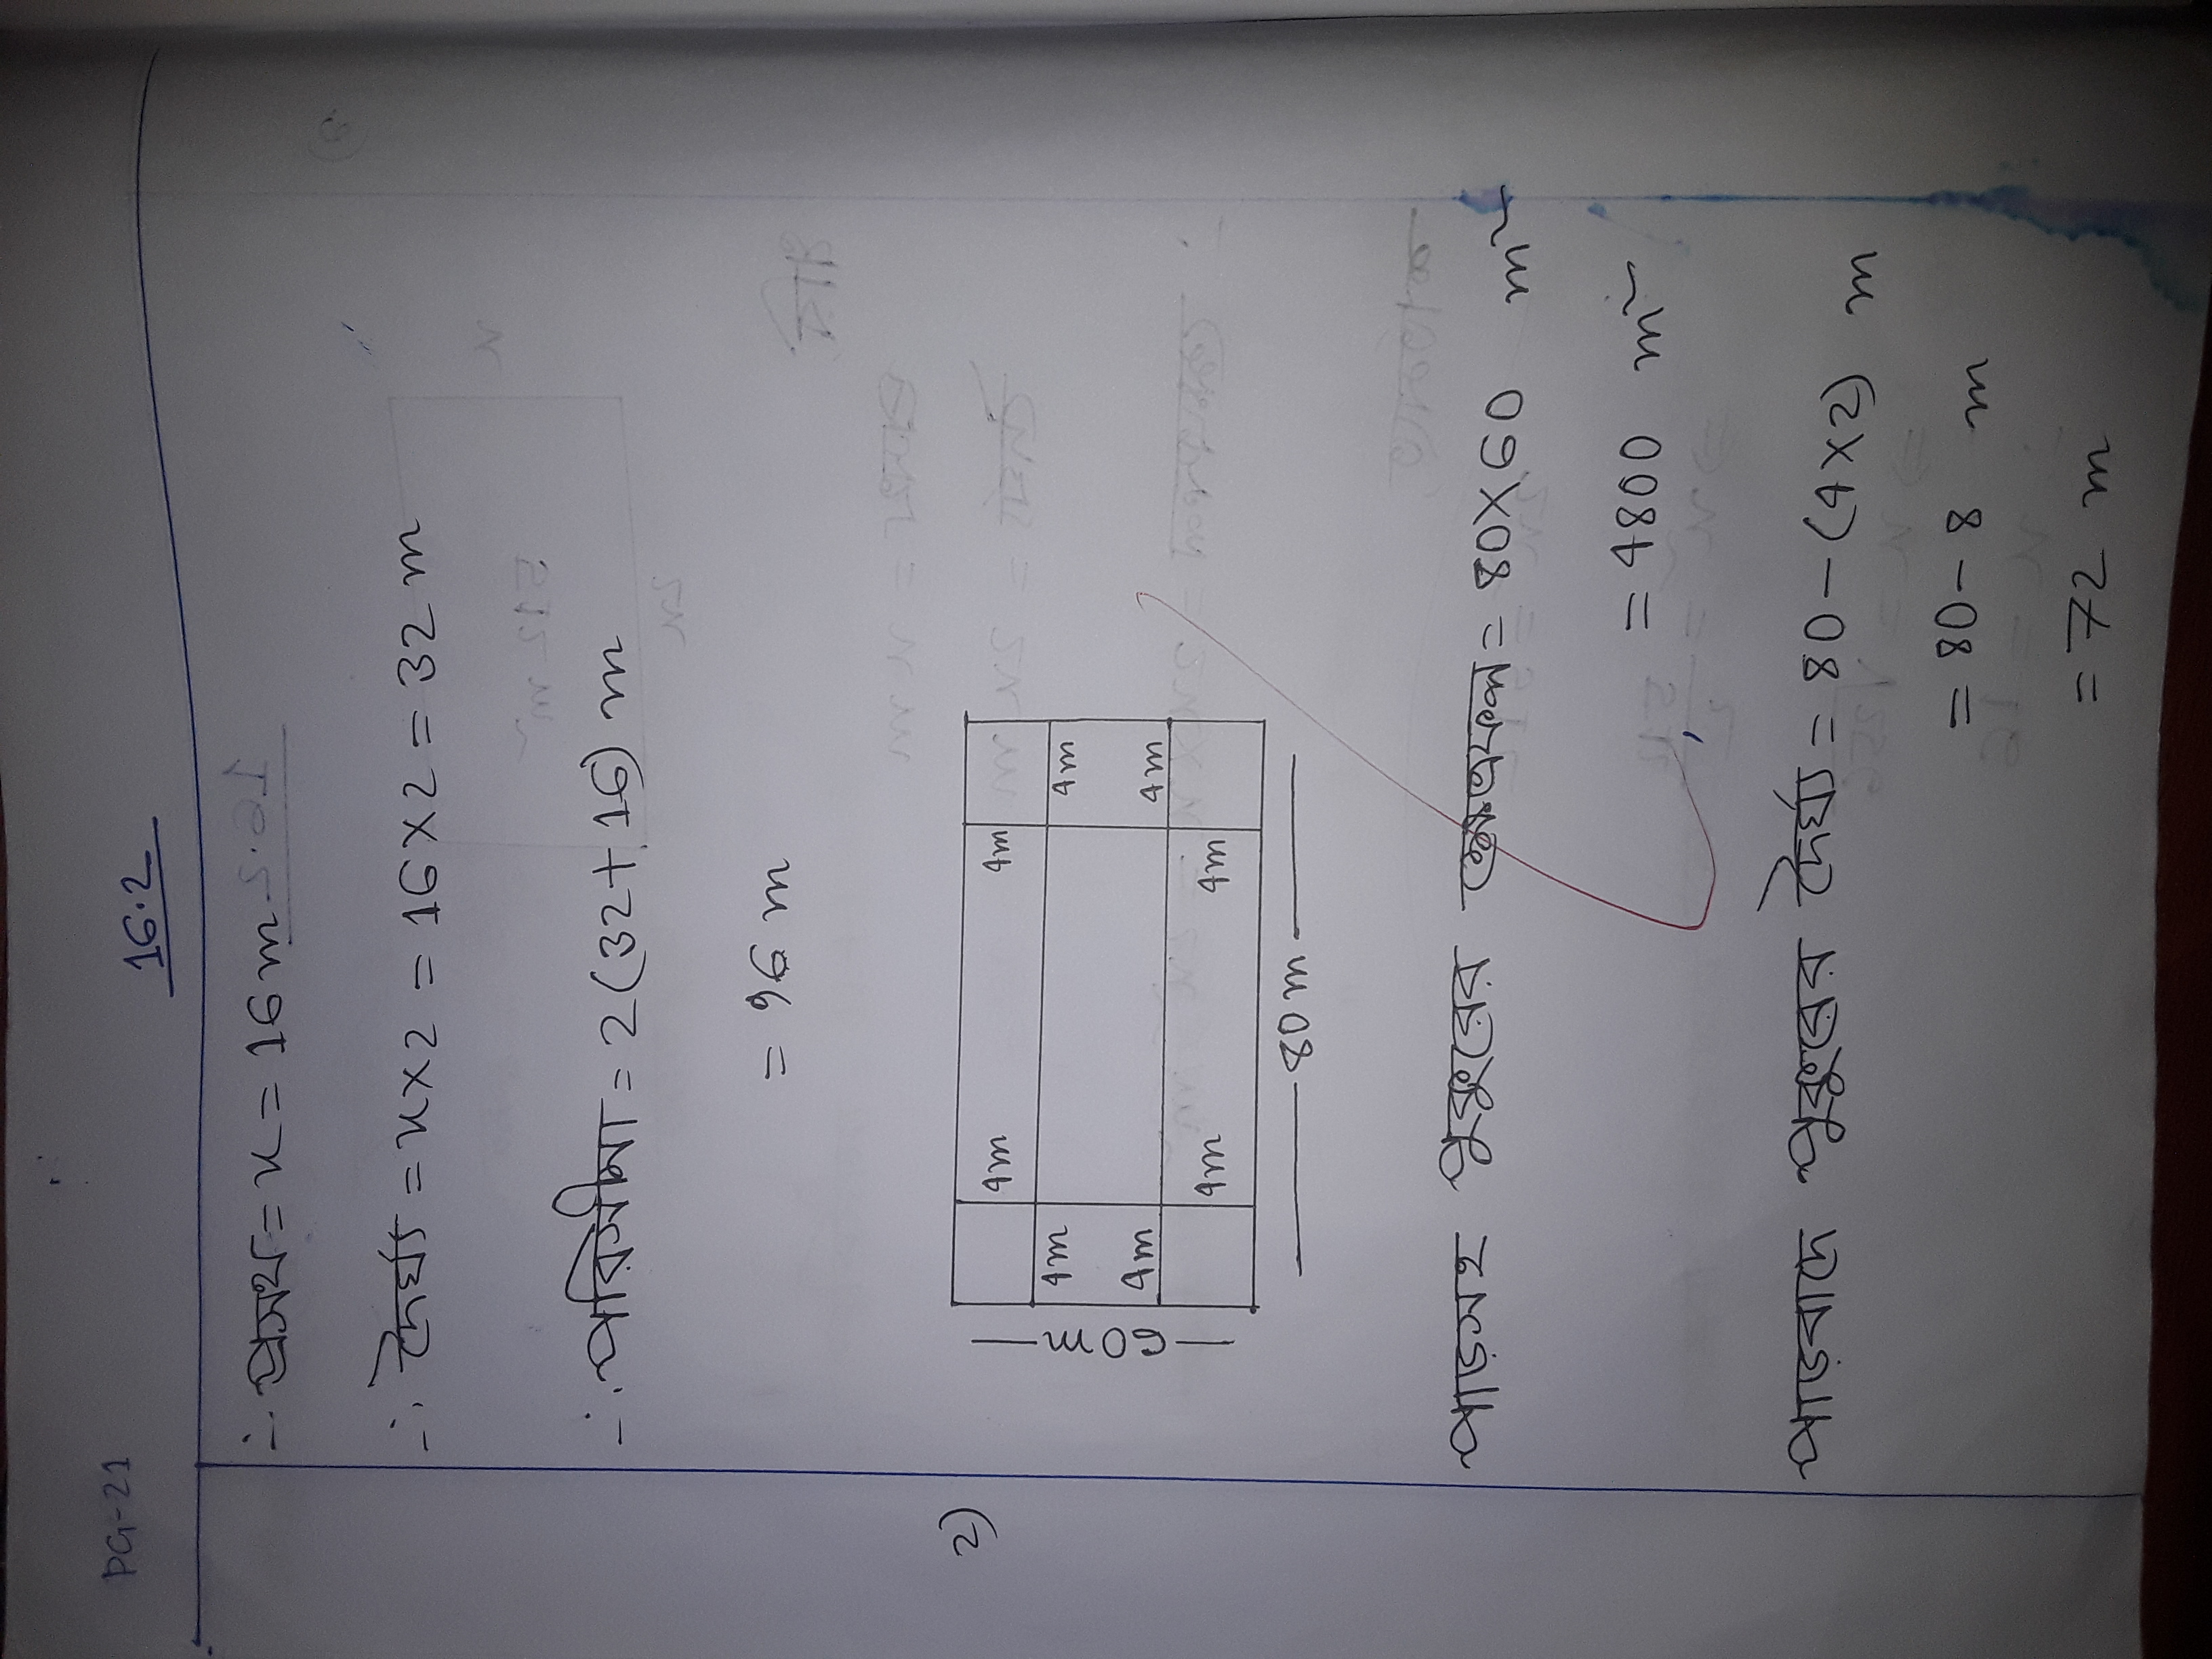 PG-21
16.2
∴ প্রসথ = x = 16 m
∴ দৈর্ঘ্য = x×2 = 16×2 = 32 m
∴ পরিসীমা = 2(32+16) m
= 96 m
2)
4m 4m
4m 4m
60m
4m 4m
4m 4m
80 m
পাড়সহ পুকুরের ক্ষেত্রফল = 80×60 m²
= 4800 m²
পাড়বাদে পুকুরের দৈর্ঘ্য = 80-(4×2) m
= 80-8 m
= 72 m